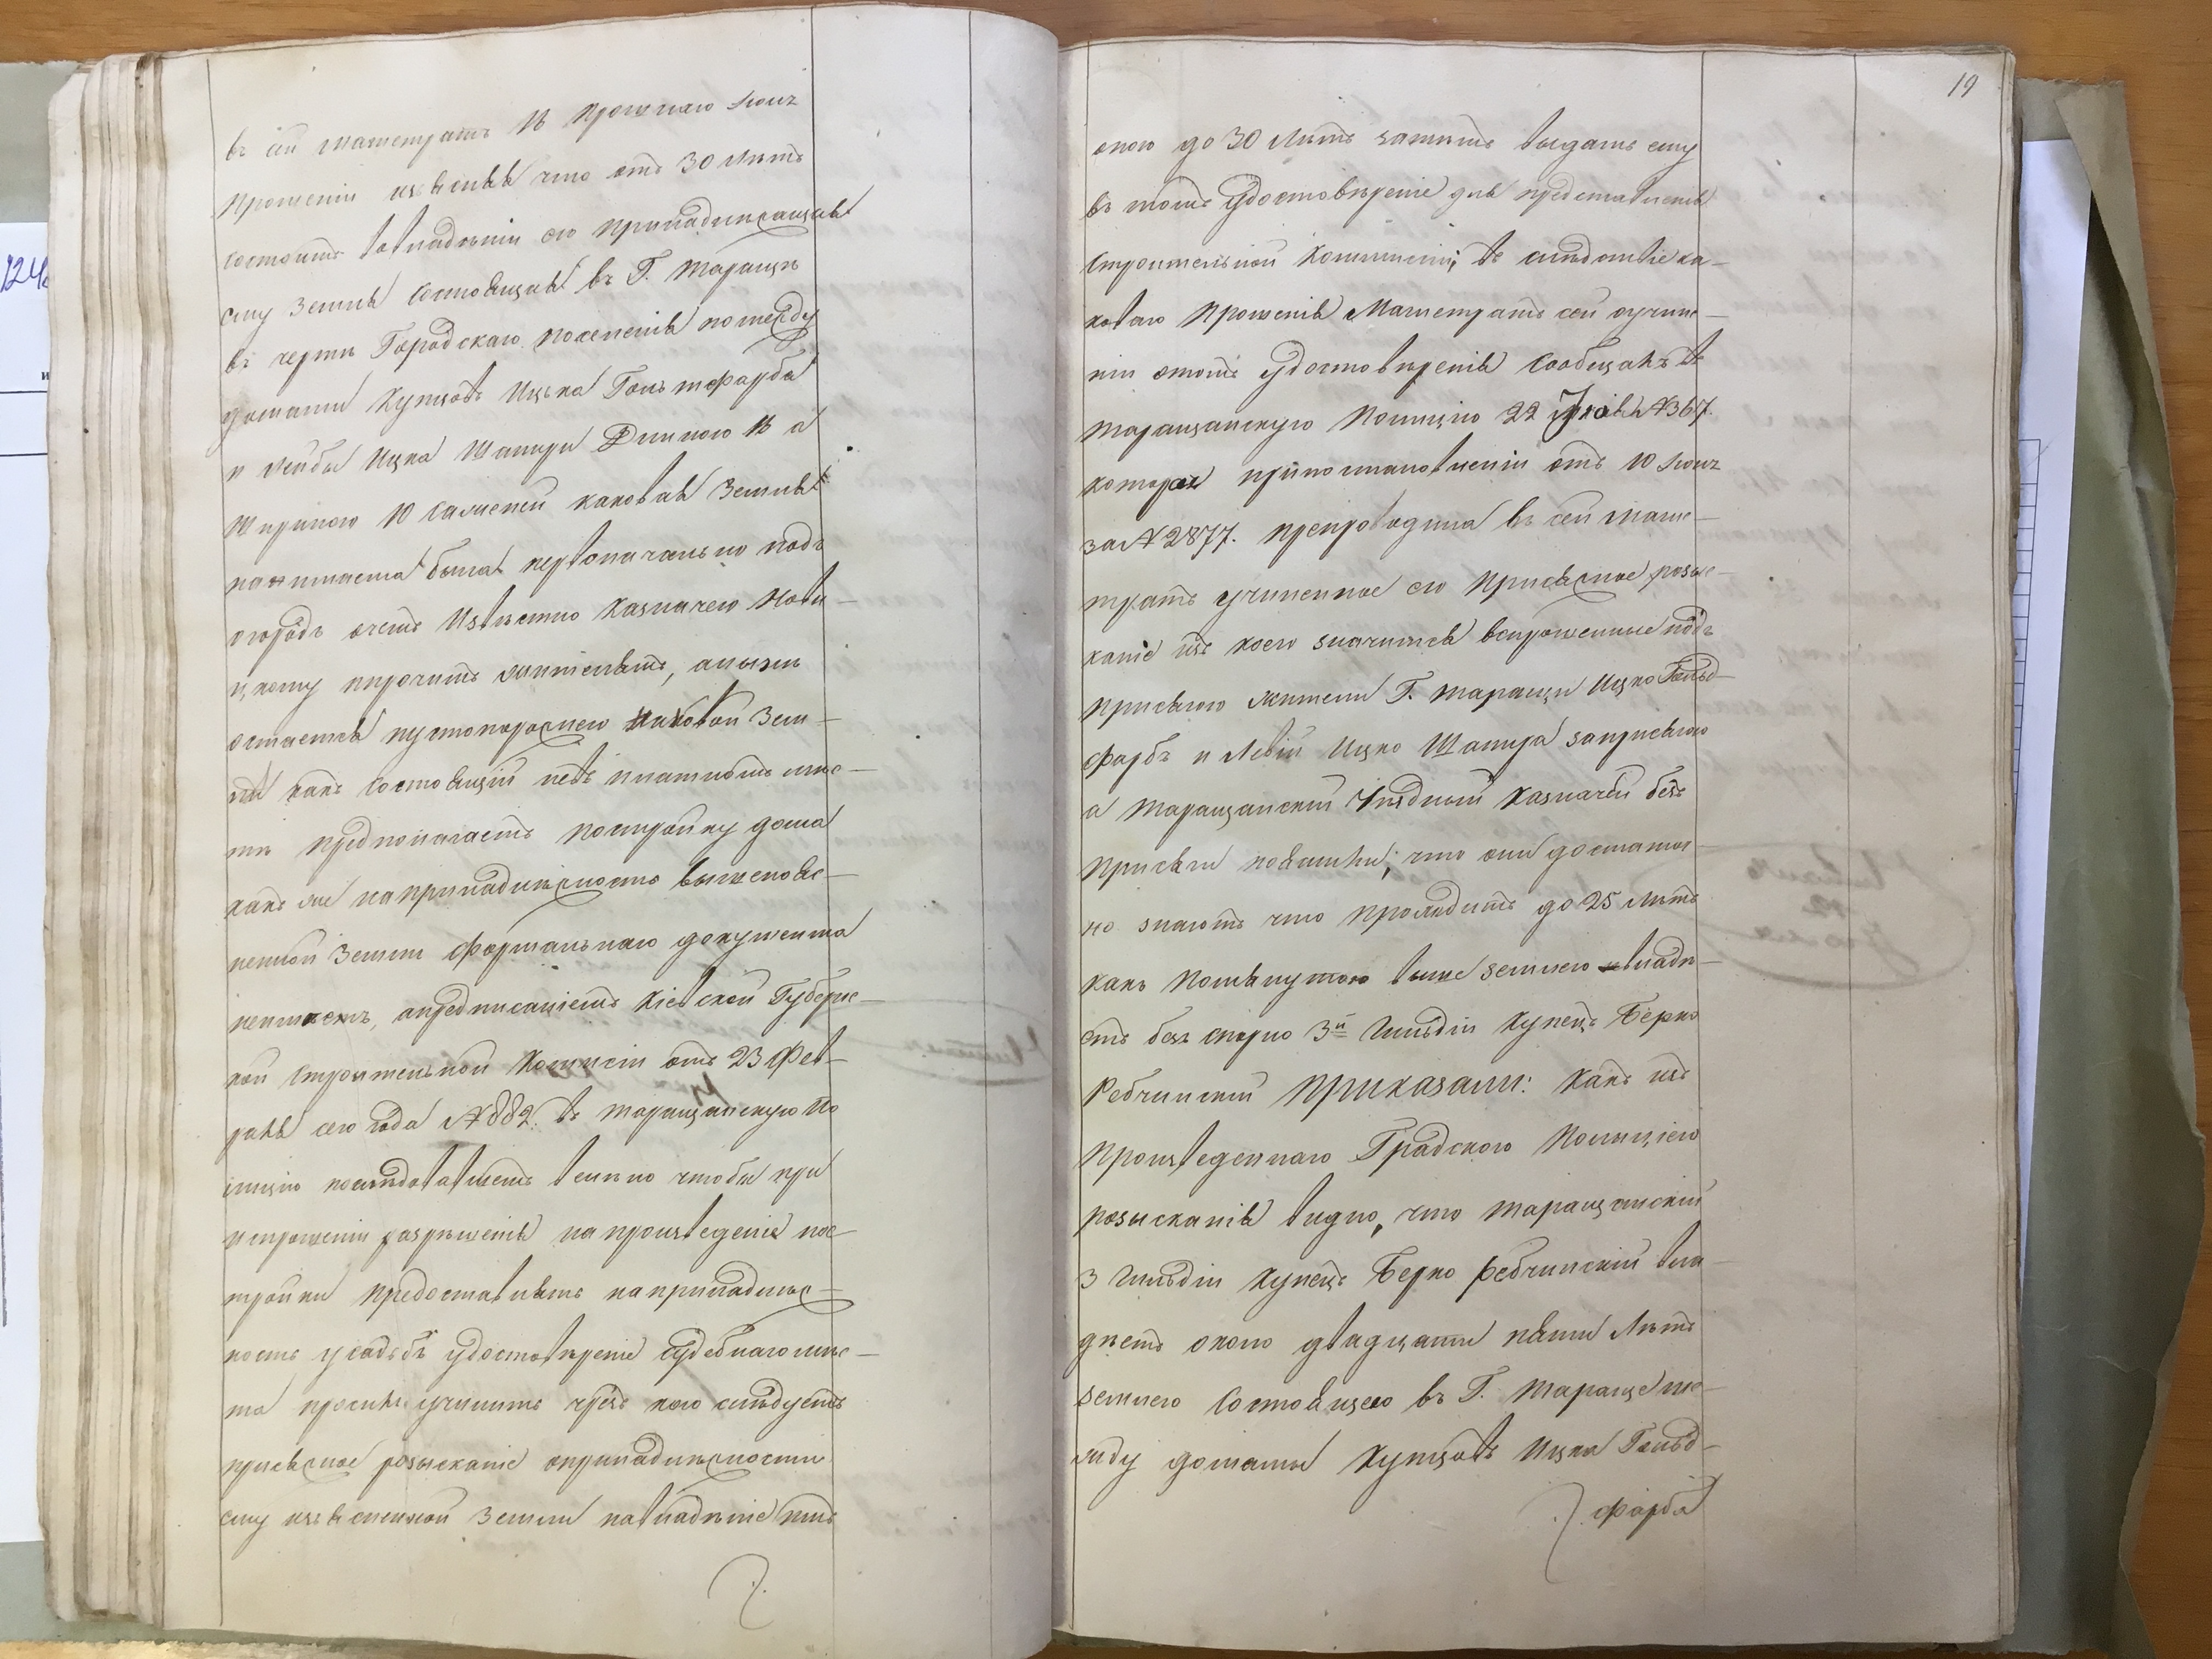 въ сей магистратъ 18 прошлаго Іюня
прошеніи изъясняя что отъ 30 лѣтъ
состоитъ во владѣніи его принадлежащая
ему земля состоящая въ Г. Таращѣ
въ чертѣ Городскаго поселенія помежду
домами купцовъ Ицька Гольтфарба
и Лейбы Ицка Шапиры Длиною 18 а
шириною 10 саженей каковая земля
занимаема была первоначально подъ
огородъ очемъ Извѣстно казначею Нови-
цкому и прочимъ жителямъ, а нынѣ
остается пустопорожнею на каковой зем-
ли какъ состоящій въ платномъ мѣс-
тѣ предполагаетъ постройку дома
какъ же на принадлежность вышепояс-
ненной земли формальнаго документа
неимѣетъ, а предписаніемъ Кіевской Губернс-
кой строительной Комисіи отъ 23 Фев-
раля сего года №882. въ Таращанскую По
лицію послѣдовавшемъ велено чтобы при
испрошеніи разрѣшенія на произведеніе пос-
тройки предоставлять на принадлеж-
ность усадьбъ удостовѣреніе судебнаго мѣс-
та просилъ учинить чрезъ кого слѣдуетъ
присяжное розысканіе о принадлежности
ему изъясненной земли на владѣніе имъ
19
оною до 30 лѣтъ затѣмъ выдать ему
въ томъ удостовѣреніе для представленія
строительной Коммисіи; въ слѣдствіе ка-
коваго прошенія Магистратъ сей о учине-
ніи о томъ удостовѣренія сообщалъ въ
Таращанскую Полицію 22 Іюня №367.
которая при постановленіи отъ 10 Іюля
за №2877. препроводила въ сей Маги-
тратъ учиненное ею присяжное розыс-
каніе изъ коего значится вспрошенные подъ
присягою жители Г. Таращи Ицко Гольд-
фарбъ и Левій Ицко Шапира за присягою
а Таращанскій Уѣздный Казначей безъ
присяги показали; что они достаточ-
но знаютъ что проходитъ до 25 лѣтъ
какъ помянутою выше землею владѣ-
етъ безъ спорно 3й Гильдіи купецъ Берко
Ребчинскій Приказали: какъ изъ
произведеннаго Градскою Полиціею
розысканія видно, что Таращанскій
3 Гильдіи купецъ Берко Ребчинскій вла-
дѣетъ около двадцати пяти лѣтъ
землею состоящею въ Г. Тараще ме-
жду домами купцовъ Ицка Гольд-
фарба